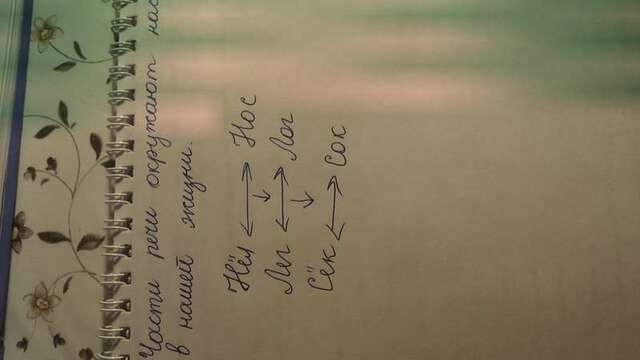 Части речи окружают нас
в нашей жизни.
Нёс ↔ Нос
Лёг ↔ Лог
Сёк ↔ Сок